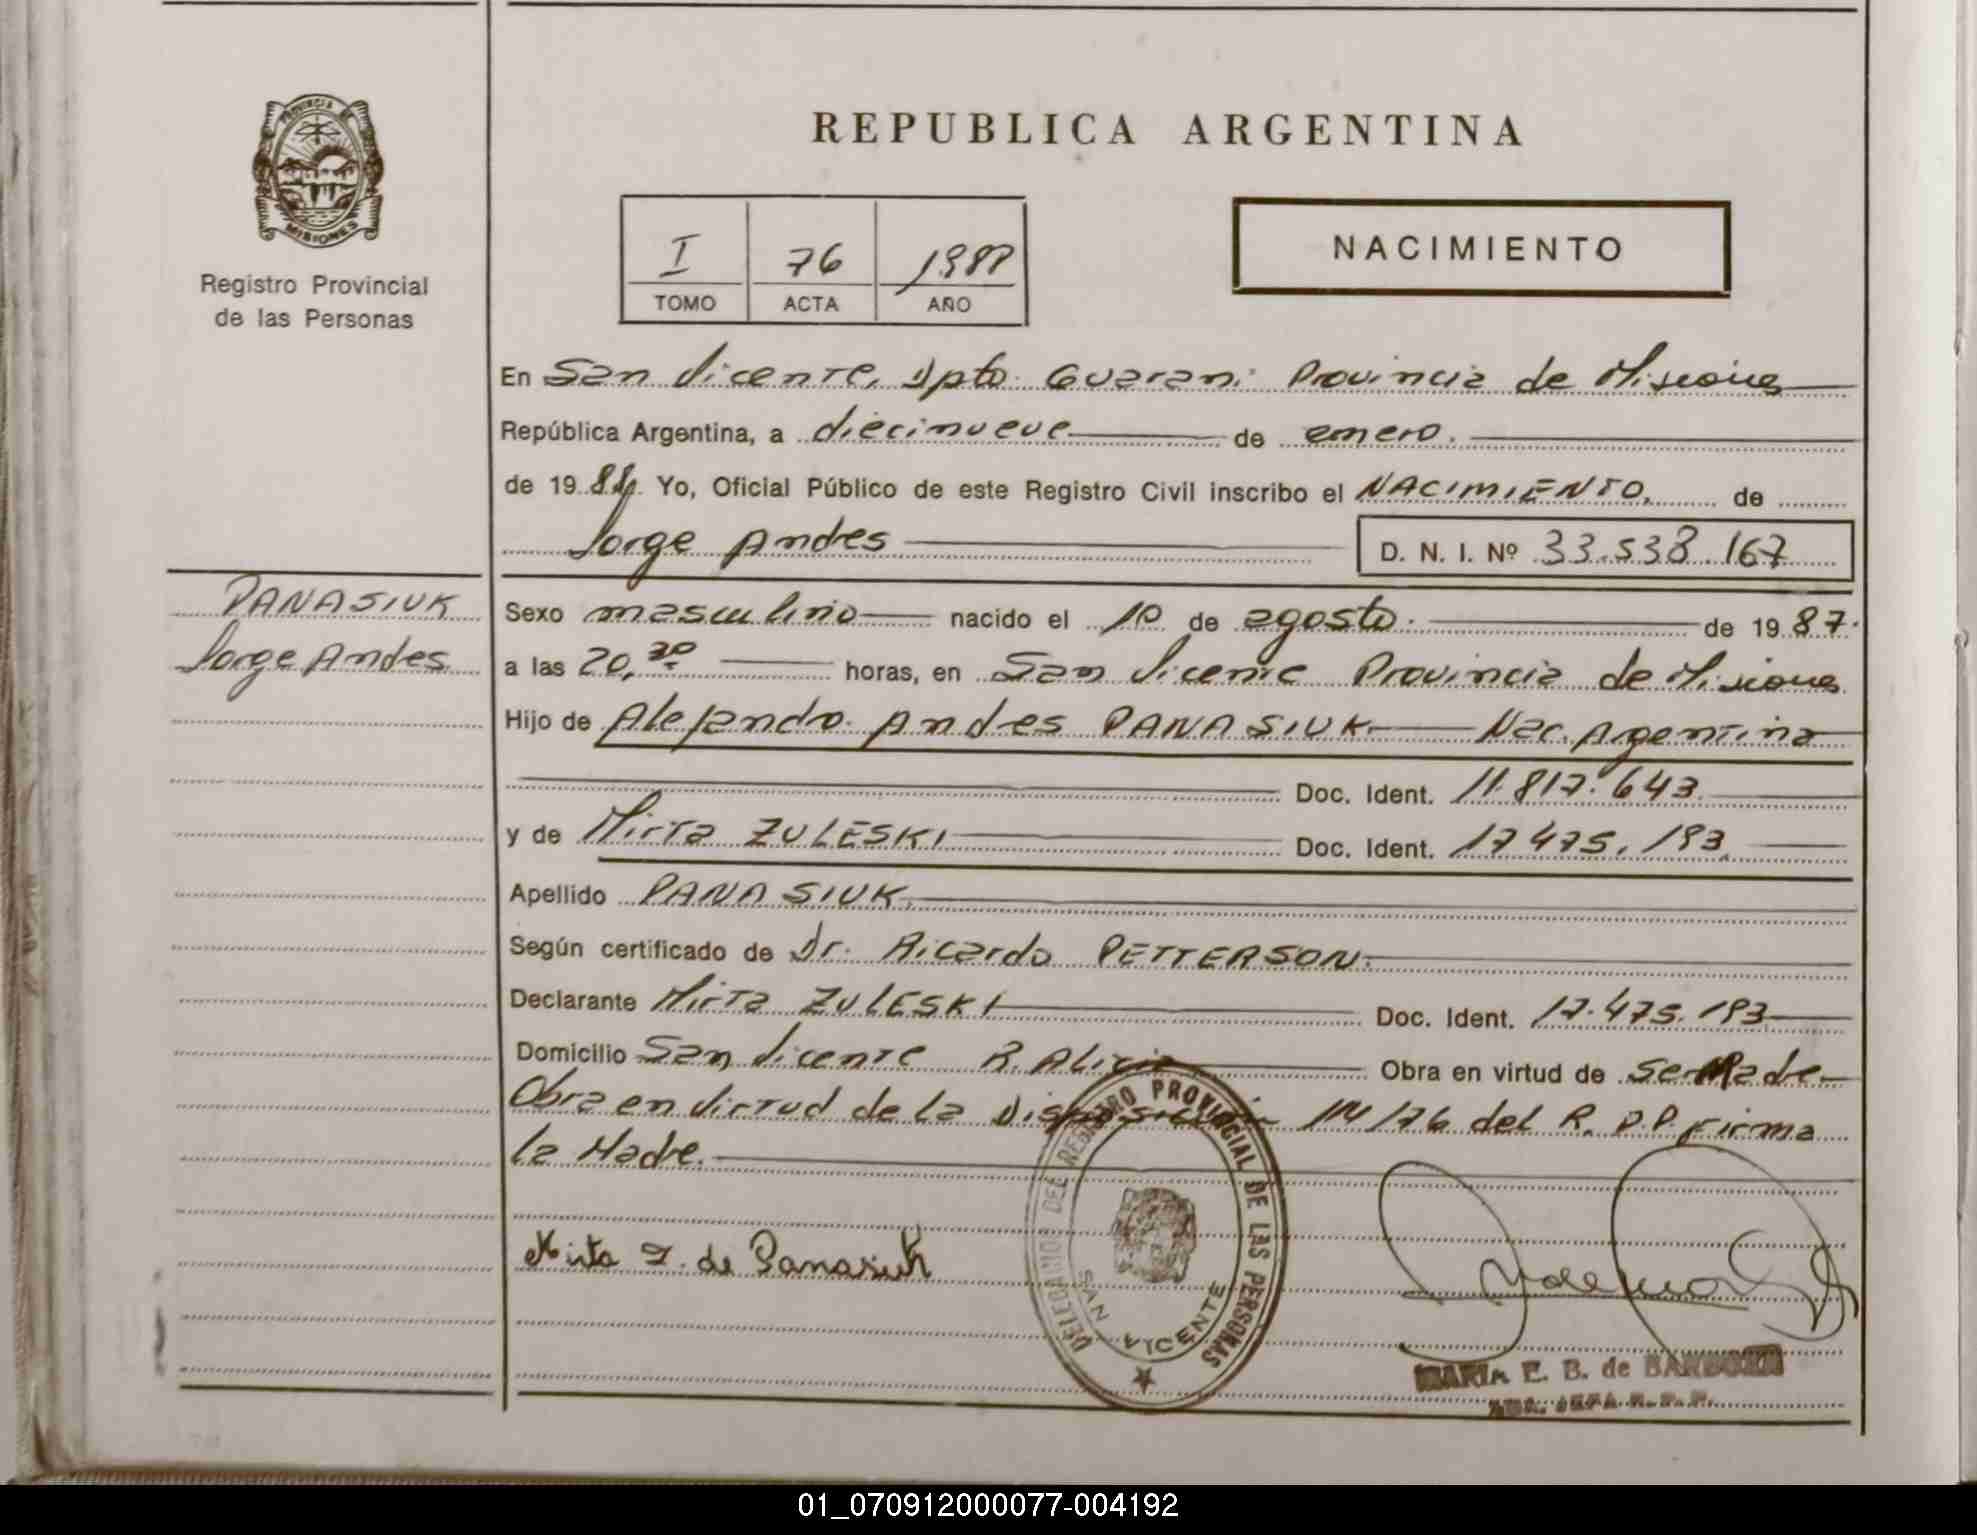 PROVINCIA DE
MISIONES
Registro Provincial
de las Personas
REPUBLICA ARGENTINA
I 76 1988
TOMO ACTA AÑO
NACIMIENTO
En San Vicente, Dpto. Guarani Provincia de Misiones
República Argentina, a diecinueve de enero.
de 1988. Yo, Oficial Público de este Registro Civil inscribo el NACIMIENTO. de
Jorge Andes
D. N. I. Nº 33.538.167
PANASIUK
Jorge Andes
Sexo masculino nacido el 10 de agosto. de 1987.
a las 20,30 horas, en San Vicente Provincia de Misiones
Hijo de Alejandro Andes PANASIUK Nac. Argentina
Doc. Ident. 11.817.643
y de Mirta ZULESKI Doc. Ident. 17.475.193
Apellido PANASIUK.
Según certificado de Dr. Ricardo PETTERSON.
Declarante Mirta ZULESKI Doc. Ident. 17.475.193
Domicilio San Vicente B. Alicia Obra en virtud de ser Madre
Obra en virtud de la Disposición 114/76 del R.P.P. Firma
la Madre.
Mirta Z. de Panasiuk
DELEGACION DEL REGISTRO PROVINCIAL DE LAS PERSONAS
SAN VICENTE
MARIA E. B. de BARBOZA
JEFA R.P.P.
01_070912000077-004192